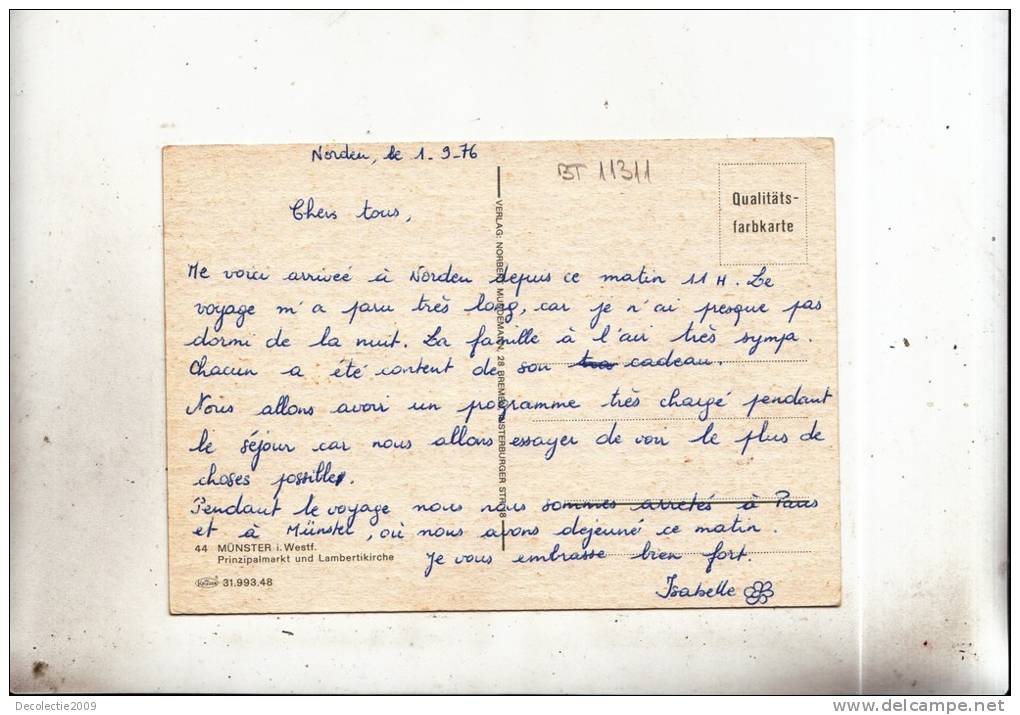 Norden, le 1-9-76
BT 11311
Qualitäts-
farbkarte
Chers tous,
Me voici arriveé à Norden depuis ce matin 11 H. Le
voyage m'a paru très long, car je n'ai presque pas
dormi de la nuit. La famille à l'air très sympa.
Chacun a été content de son cadeau.
Nous allons avoir un programme très chargé pendant
le séjour car nous allons essayer de voir le plus de
choses possible.
Pendant le voyage nous nous sommes arretés à Paris
et à Münster, où nous avons dejeuné ce matin.
Je vous embrasse bien fort.
Isabelle
VERLAG: NORBERT MUNDEMANN, 28 BREMEN, INSTERBURGER STR. 18
44 MÜNSTER i. Westf.
Prinzipalmarkt und Lambertikirche
31.993.48
Decolectie2009
www.delcampe.net